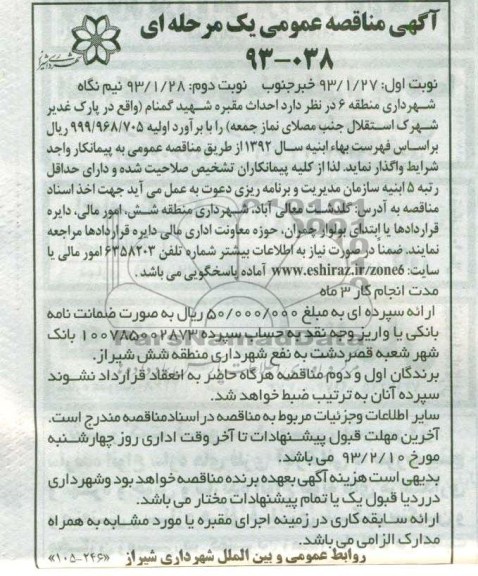 آگهی مناقصه عمومی یک مرحله ای
۹۳-۰۳۸
شهرداری شیراز
نوبت اول: ۹۳/۱/۲۷ خبرجنوب نوبت دوم: ۹۳/۱/۲۸ نیم نگاه
شهرداری منطقه ۶ در نظر دارد احداث مقبره شهید گمنام (واقع در پارک غدیر
شهرک استقلال جنب مصلای نماز جمعه) را با برآورد اولیه ۹۹۹/۹۶۸/۷۰۵ ریال
براساس فهرست بهاء ابنیه سال ۱۳۹۲ از طریق مناقصه عمومی به پیمانکار واجد
شرایط واگذار نماید. لذا از کلیه پیمانکاران تشخیص صلاحیت شده و دارای حداقل
رتبه ۵ ابنیه سازمان مدیریت و برنامه ریزی دعوت به عمل می آید جهت اخذ اسناد
مناقصه به آدرس: گلدشت معالی آباد، شهرداری منطقه شش، امور مالی، دایره
قراردادها یا ابتدای بلوار چمران، حوزه معاونت اداری مالی دایره قراردادها مراجعه
نمایند. ضمنا در صورت نیاز به اطلاعات بیشتر شماره تلفن ۶۳۵۸۲۰۳ امور مالی یا
سایت: www.eshiraz.ir/zone6 آماده پاسخگویی می باشد.
مدت انجام کار ۳ ماه
ارائه سپرده ای به مبلغ ۵۰/۰۰۰/۰۰۰ ریال به صورت ضمانت نامه
بانکی یا واریز وجه نقد به حساب سپرده ۱۰۰۷۸۵۰۰۲۸۷۳ بانک
شهر شعبه قصردشت به نفع شهرداری منطقه شش شیراز.
برندگان اول و دوم مناقصه هرگاه حاضر به انعقاد قرارداد نشوند
سپرده آنان به ترتیب ضبط خواهد شد.
سایر اطلاعات وجزئیات مربوط به مناقصه در اسنادمناقصه مندرج است.
آخرین مهلت قبول پیشنهادات تا آخر وقت اداری روز چهارشنبه
مورخ ۹۳/۲/۱۰ می باشد.
بدیهی است هزینه آگهی بعهده برنده مناقصه خواهد بود وشهرداری
درردیا قبول یک یا تمام پیشنهادات مختار می باشد.
ارائه سابقه کاری در زمینه اجرای مقبره یا مورد مشابه به همراه
مدارک الزامی می باشد.
روابط عمومی و بین الملل شهرداری شیراز «۲۴۶-۱۰۵»
ParsNamadData